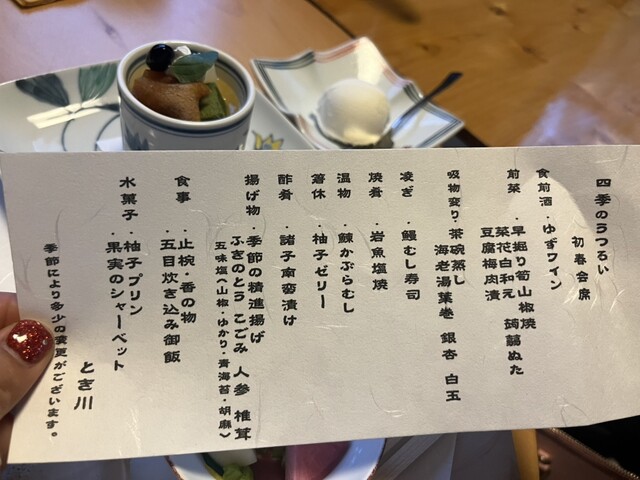 四季のうつろい
初春会席
食前酒・ゆずワイン
前菜・早掘り筍山椒焼
菜花白和え 蒟蒻ぬた
豆腐梅肉漬
吸物変り・茶碗蒸し
海老湯葉巻 銀杏 白玉
凌ぎ・鰻むし寿司
焼肴・岩魚塩焼
温物・鰊かぶらむし
箸休・柚子ゼリー
酢肴・諸子南蛮漬け
揚げ物・季節の精進揚げ
ふきのとう こごみ 人参 椎茸
五味塩（山椒・ゆかり・青海苔・胡麻）
食事・止椀・香の物
・五目炊き込み御飯
水菓子・柚子プリン
・果実のシャーベット
とき川
季節により多少の変更がございます。